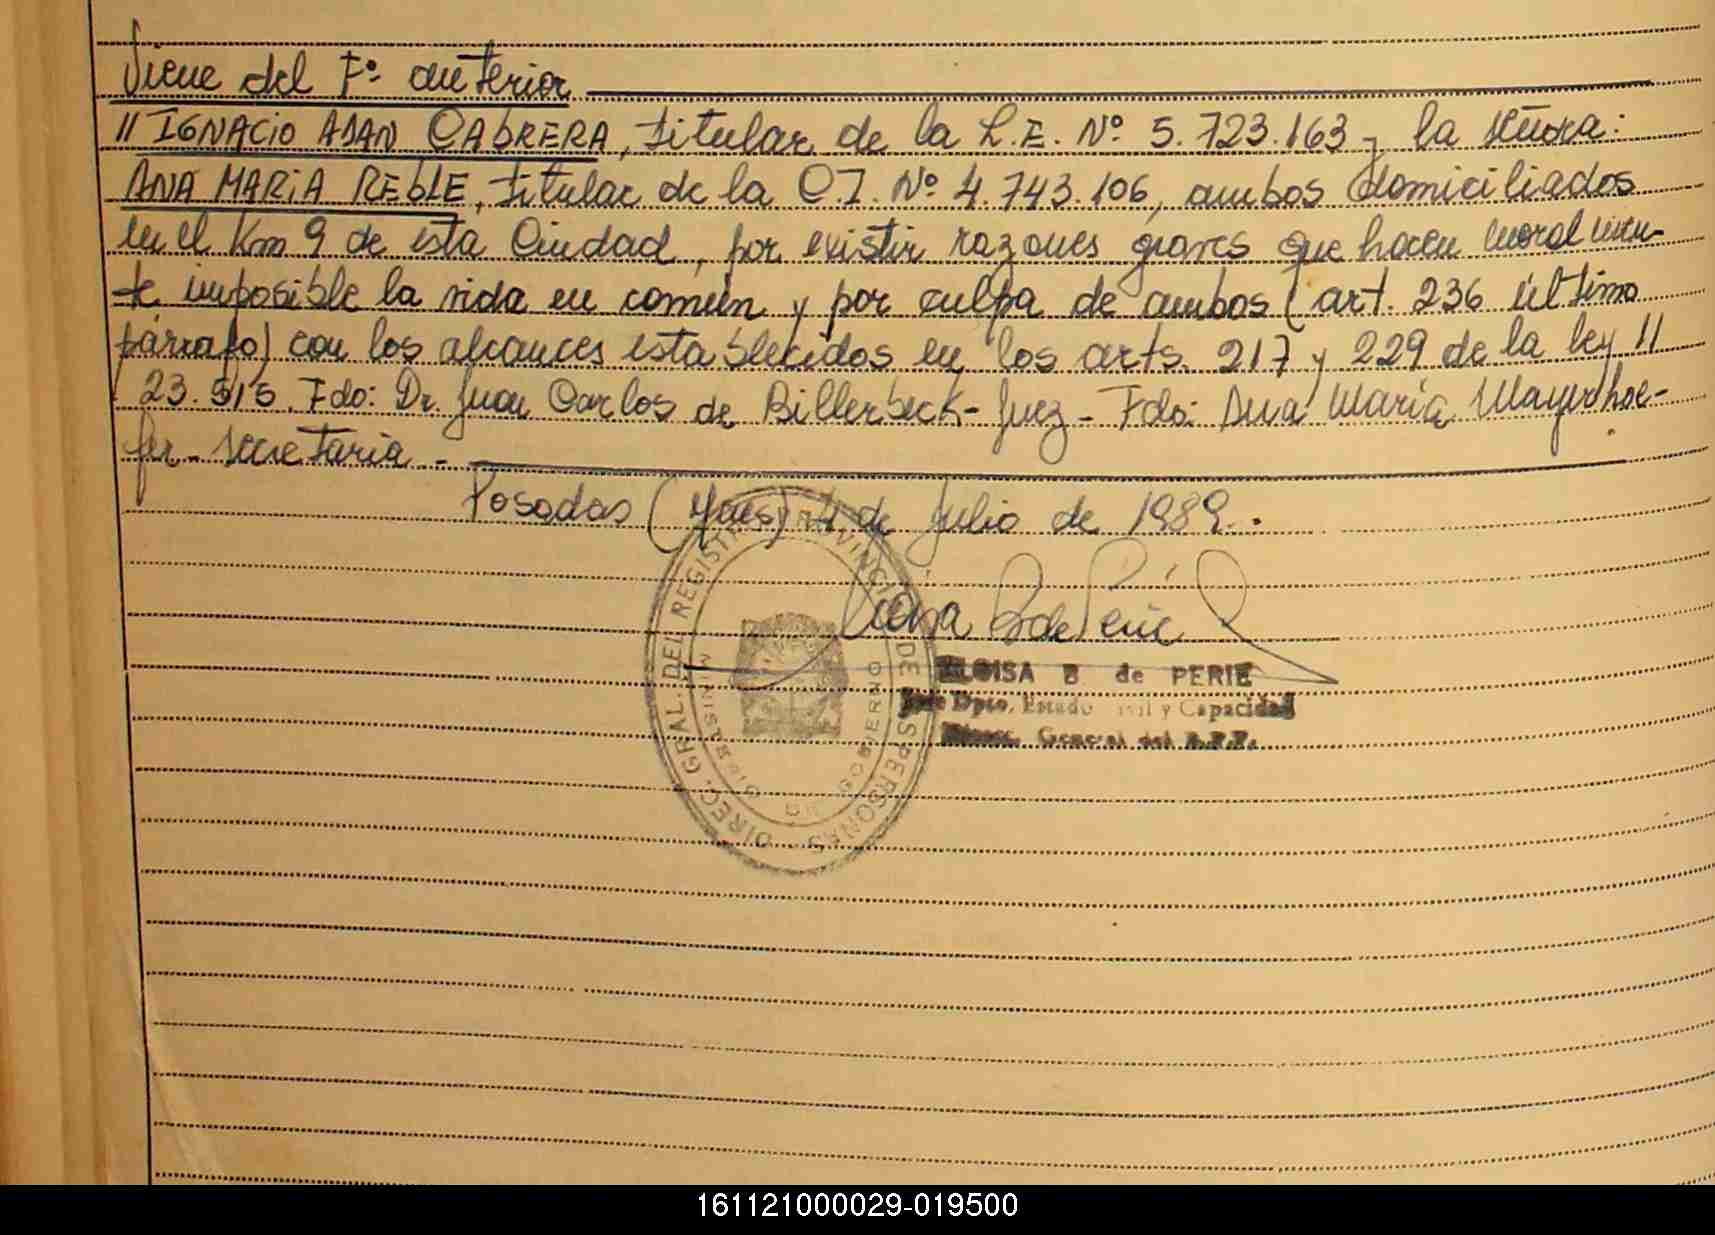 Viene del F° anterior
// IGNACIO ADAN CABRERA, titular de la L.E. N° 5.723.163 y la señora:
ANA MARIA REBLE, titular de la C.I. N° 4.743.106, ambos domiciliados
en el Km 9 de esta Ciudad, por existir razones graves que hacen moralmen-
te imposible la vida en común y por culpa de ambos (art. 236 último
párrafo) con los alcances establecidos en los arts. 217 y 229 de la ley //
23.515. Fdo: Dr. Juan Carlos de Billerbeck - Juez - Fdo: Ana María Mayerhoe-
fer - secretaria -
Posadas (Mnes) 4 de Julio de 1989.
DIREC. GRAL. DEL REGISTRO PROVINCIAL DE LAS PERSONAS
MINISTERIO DE GOBIERNO
ELOISA B de PERIE
Jefe Dpto. Estado Civil y Capacidad
Direcc. General del R.P.P.
161121000029-019500